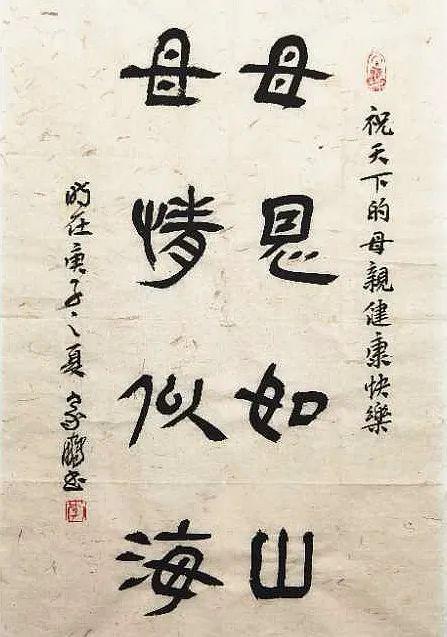 祝天下的母親健康快樂
母恩如山
母情似海
時在庚子之夏